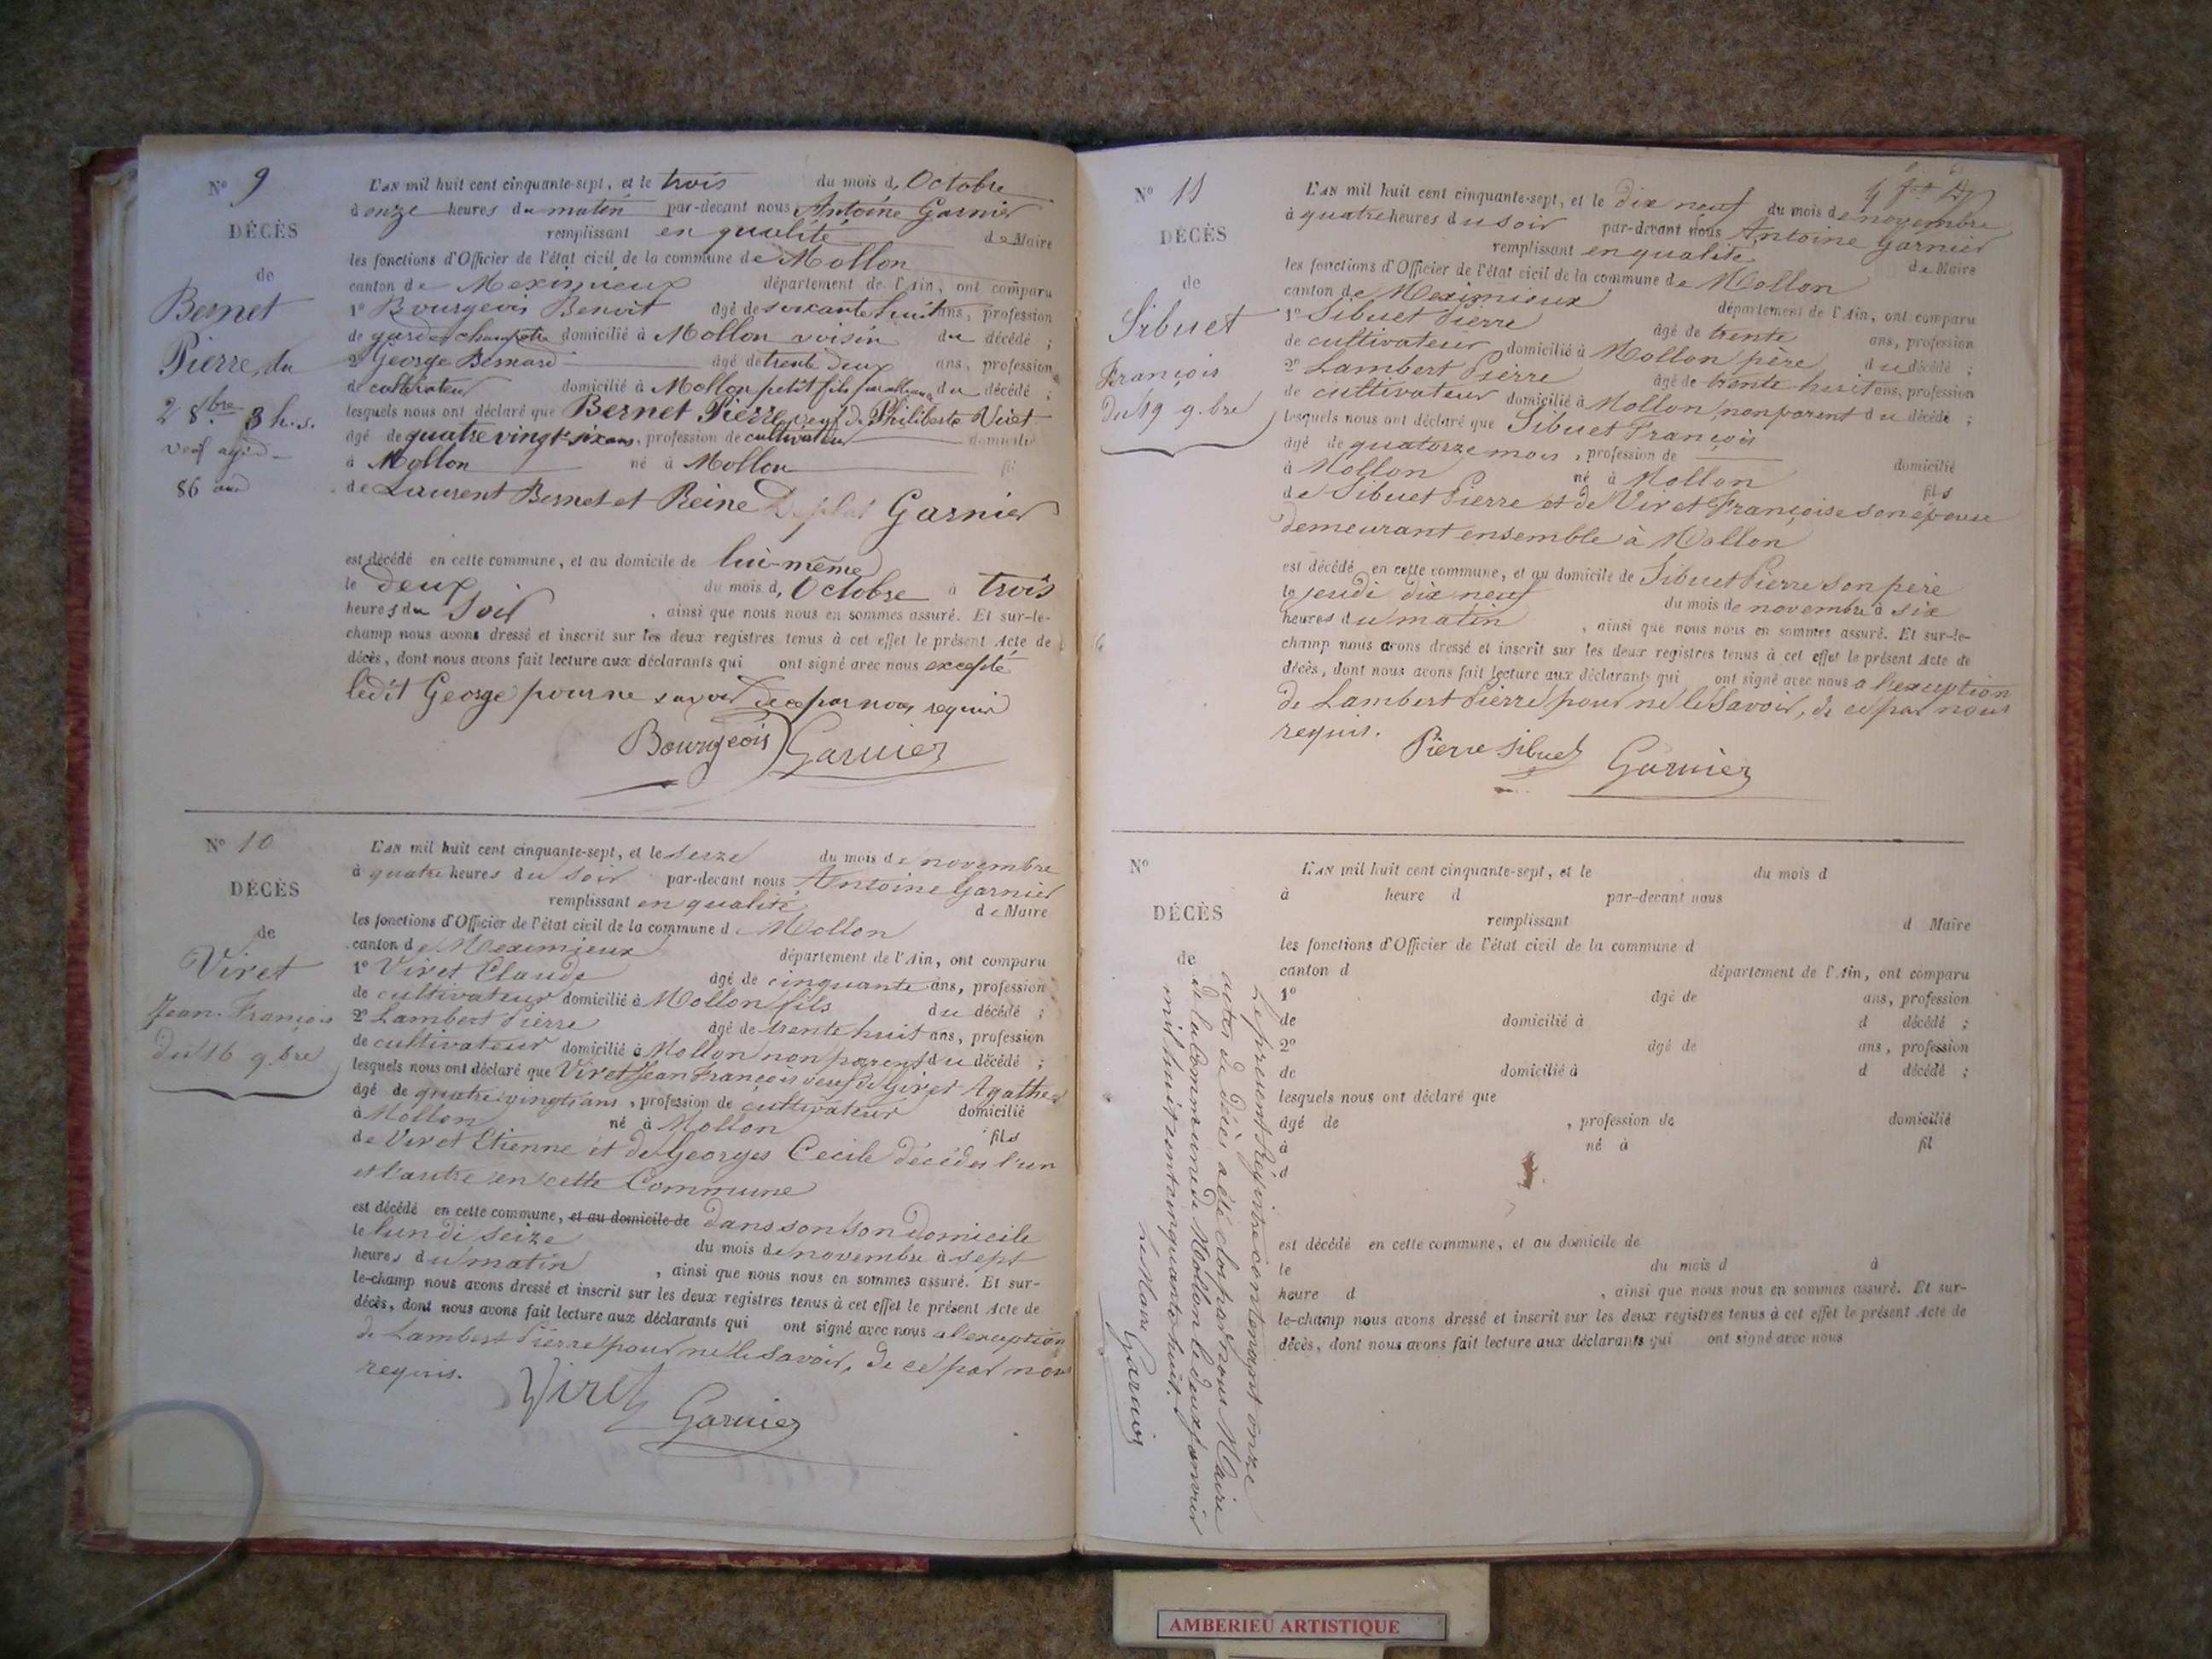 N° 9
DÉCÈS
de
Bernet
Pierre, du
2 8.bre 3 h. s.
veuf agé d
86 ans
L'AN mil huit cent cinquante-sept, et le trois du mois d, Octobre
à onze heures du matin par-devant nous Antoine Garnier
remplissant en qualité de Maire
les fonctions d'Officier de l'état civil de la commune de Mollon
canton de Meximieux département de l'Ain, ont comparu
1° Bourgeois Benoit âgé de soixante huit ans, profession
de garde champêtre domicilié à Mollon voisin du décédé ;
2° George Bernard âgé de trente deux ans, profession
de cultivateur domicilié à Mollon petit fils par alliance du décédé ;
lesquels nous ont déclaré que Bernet Pierre, veuf de Philiberte Viret
âgé de quatre vingt-six ans, profession de cultivateur domicilié
à Mollon né à Mollon fil
de Laurent Bernet et Reine Garnier
est décédé en cette commune, et au domicile de lui-même
le deux du mois d, Octobre à trois
heures du Soir , ainsi que nous nous en sommes assuré. Et sur-le-
champ nous avons dressé et inscrit sur les deux registres tenus à cet effet le présent Acte de
décès, dont nous avons fait lecture aux déclarants qui ont signé avec nous excepté
ledit George pour ne savoir de ce par nous requis
Bourgeois Garnier
N° 10
DÉCÈS
de
Viret
Jean-François
du 16 9.bre
L'AN mil huit cent cinquante-sept, et le seize du mois de novembre
à quatre heures du soir par-devant nous Antoine Garnier
remplissant en qualité de Maire
les fonctions d'Officier de l'état civil de la commune d Mollon
canton de Meximieux département de l'Ain, ont comparu
1° Viret Claude âgé de cinquante ans, profession
de cultivateur domicilié à Mollon fils du décédé ;
2° Lambert Pierre âgé de trente huit ans, profession
de cultivateur domicilié à Mollon non parent du décédé ;
lesquels nous ont déclaré que Viret Jean François veuf de Giret Agathe
âgé de quatre vingts ans, profession de cultivateur domicilié
à Mollon né à Mollon fils
de Viret Etienne et de Georges Cecile décédés l'un
et l'autre en cette Commune
est décédé en cette commune, et au domicile de dans son son domicile
le lundi seize du mois de novembre à sept
heures du matin , ainsi que nous nous en sommes assuré. Et sur-
le-champ nous avons dressé et inscrit sur les deux registres tenus à cet effet le présent Acte de
décès, dont nous avons fait lecture aux déclarants qui ont signé avec nous a l'exception
de Lambert Pierre pour ne le savoir, de ce par nous
requis.
Viret Garnier
N° 11
DÉCÈS
de
Sibuet
François
du 19 9.bre
L'AN mil huit cent cinquante-sept, et le dix neuf du mois de novembre
à quatre heures du soir par-devant nous Antoine Garnier
remplissant en qualité de Maire
les fonctions d'Officier de l'état civil de la commune de Mollon
canton de Meximieux département de l'Ain, ont comparu
1° Sibuet Pierre âgé de trente ans, profession
de cultivateur domicilié à Mollon père du décédé ;
2° Lambert Pierre âgé de trente huit ans, profession
de cultivateur domicilié à Mollon non parent du décédé ;
lesquels nous ont déclaré que Sibuet François
âgé de quatorze mois, profession de domicilié
à Mollon né à Mollon fils
de Sibuet Pierre et de Viret Françoise son épouse
demeurant ensemble à Mollon
est décédé en cette commune, et au domicile de Sibuet Pierre son père
le jeudi dix neuf du mois de novembre à six
heures du matin , ainsi que nous nous en sommes assuré. Et sur-le-
champ nous avons dressé et inscrit sur les deux registres tenus à cet effet le présent Acte de
décès, dont nous avons fait lecture aux déclarants qui ont signé avec nous a l'exception
de Lambert Pierre pour ne le Savoir, de ce par nous
requis.
Pierre Sibuet Garnier
N°
DÉCÈS
de
L'AN mil huit cent cinquante-sept, et le du mois d
à heure d par-devant nous
remplissant d Maire
les fonctions d'Officier de l'état civil de la commune d
canton d département de l'Ain, ont comparu
1° âgé de ans, profession
de domicilié à d décédé ;
2° âgé de ans, profession
de domicilié à d décédé ;
lesquels nous ont déclaré que
âgé de , profession de domicilié
à né à fil
d
est décédé en cette commune, et au domicile de
le du mois d à
heure d , ainsi que nous nous en sommes assuré. Et sur-
le-champ nous avons dressé et inscrit sur les deux registres tenus à cet effet le présent Acte de
décès, dont nous avons fait lecture aux déclarants qui ont signé avec nous
Le présent Régistre contenant onze
actes de décès a été clos par nous Maire
de la Commune de Mollon le deux janvier
mil huit cent cinquante huit.
Le Maire Garnier
AMBERIEU ARTISTIQUE